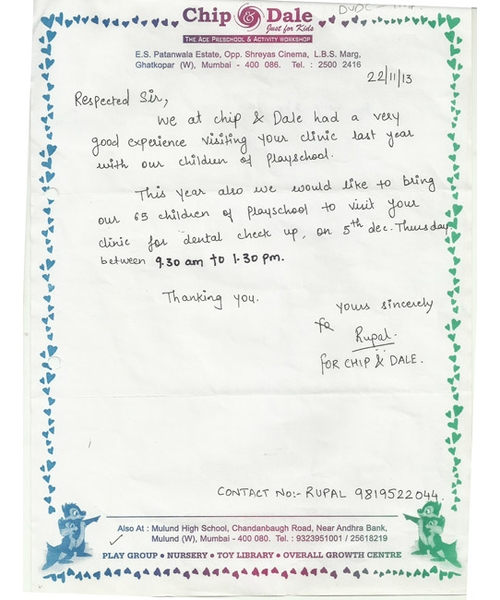 Chip & Dale
Just for Kids
THE ACE PRESCHOOL & ACTIVITY WORKSHOP
E.S. Patanwala Estate, Opp. Shreyas Cinema, L.B.S. Marg,
Ghatkopar (W), Mumbai - 400 086. Tel. : 2500 2416
22/11/13
Respected Sir,
We at chip & Dale had a very
good experience visiting your clinic last year
with our children of playschool.
This year also we would like to bring
our 65 children of playschool to visit your
clinic for dental check up, on 5th dec. Thursday
between 9.30 am to 1.30 pm.
Thanking you.
yours sincerely
Rupal.
FOR CHIP & DALE.
CONTACT No:- RUPAL 9819522044.
Also At : Mulund High School, Chandanbaugh Road, Near Andhra Bank,
Mulund (W), Mumbai - 400 080. Tel. : 9323951001 / 25618219
PLAY GROUP • NURSERY • TOY LIBRARY • OVERALL GROWTH CENTRE